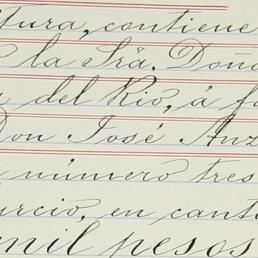 tura, contiene
la Srã. Doña
del Rio, á fa
Don José Anz
número tres
urcio, en canti
mil pesos